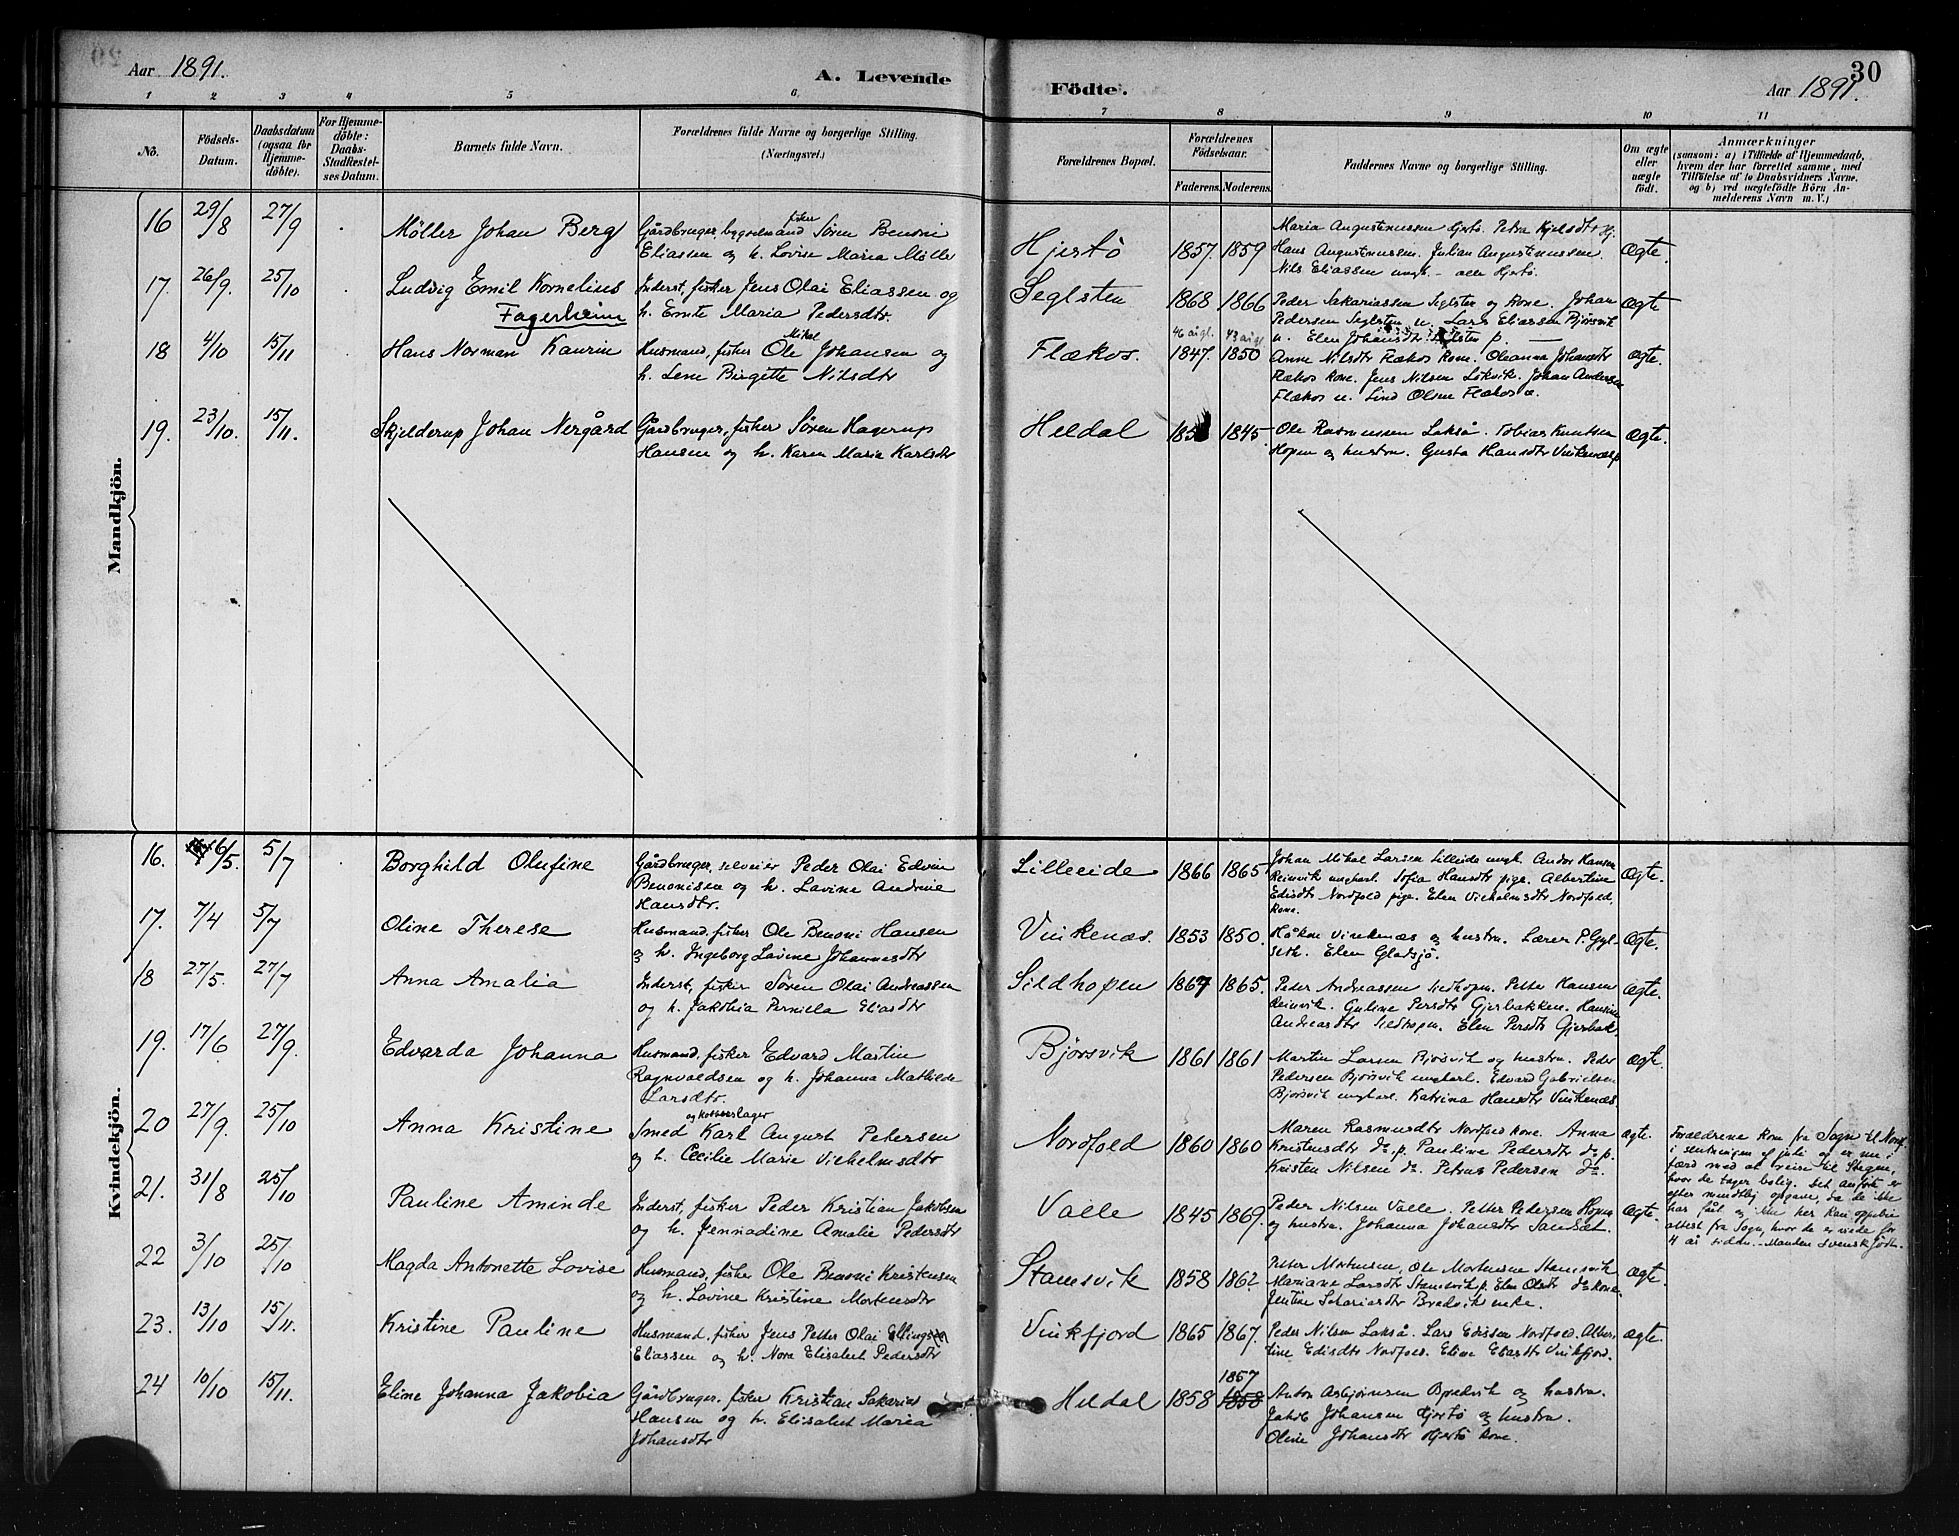 Aar 1891.
A. Levende
Födte.
30
Aar 1891.
1 2 3 4 5 6 7 8 9 10 11
No.
Födsels-
Datum.
Daabsdatum
(ogsaa for
Hjemme-
döbte).
For Hjemme-
döbte:
Daabs-
Stadfestel-
ses Datum.
Barnets fulde Navn.
Forældrenes fulde Navne og borgerlige Stilling.
(Næringsvei.)
Forældrenes Bopæl.
Forældrenes
Födselsaar.
Faderens. Moderens.
Faddernes Navne og borgerlige Stilling.
Om ægte
eller
uægte
födt.
Anmærkninger
(saasom: a) i Tilfælde af Hjemmedaab,
hvem der har forrettet samme, med
Tilföielse af to Daabsvidners Navne,
og b) ved uægtefödte Börn An-
melderens Navn m. V.)
Mandkjön.
16 29/8 27/9 Möller Johan Berg
fisker
Gårdbruger, bygselmand Sören Benoni
Eliassen og h. Lovise Maria Möller
Hjertö 1857. 1859
Maria Augustinussen Hjertö. Petra Kjelsdtr Hj.
Hans Augustinussen. Julian Augustinussen.
Nils Eliassen ungk. – alle Hjertö.
Ægte.
17. 26/9. 25/10 Ludvig Emil Kornelius
Fagerheim
Inderst, fisker Jens Olai Eliassen og
h. Emte Maria Pedersdtr.
Seglsten 1868 1866
Peder Sakariassen Seglsten og kone. Johan
Pedersen Seglsten u. Lars Eliassen Björsvik
u. Elen Johansdtr Seglsten p.
Ægte
18 4/10 15/11 Hans Norman Kaurin
Mikal
Husmand, fisker Ole Johansen og
h. Lene Birgitte Nilsdtr
Flækos. 1847. 1850
Anne Nilsdtr Flækos kone. Oleanna Johansdtr
Flækos kone. Jens Nilsen Lökvik. Johan Andersen
Flækos u. Lind Olsen Flækos u.
ægte
19. 23/10. 15/11. Skjelderup Johan Nergård
Gårdbruger, fisker Sören Hagerup
Hansen og h. Karen Maria Karlsdtr
Heldal 1845.
Ole Rasmussen Lakså. Tobias Knutsen
Hopen og hustru. Gusta Hansdtr Vinkenæs p
Ægte.
Kvindekjön.
16. 6/5. 5/7 Borghild Olufine
Gårdbruger, selveier Peder Olai Edvin
Benonisen og h. Lavine Andrine
Hansdtr.
Lilleeide 1866 1865
Johan Mikal Larsen Lilleeide ungk. Andor Hansen
Reinvik ungkarl. Sofia Hansdtr pige. Albertine
Edisdtr Nordfold pige. Elen Vilhelmsdtr Nordfold,
kone.
Ægte.
17. 7/4 5/7 Oline Therese
Husmand, fisker Ole Benoni Hansen
og h. Ingeborg Lavine Johannesdtr
Vinkenæs. 1853 1850.
Håkon Vinkenæs og hustru. Lærer P. Gyl-
seth. Elen Gladsjö.
Ægte.
18 27/5. 27/7 Anna Amalia
Inderst, fisker Sören Olai Andreassen
og h. Jakobia Pernilla Eliasdtr
Sildhopen 1867 1865.
Peder Andreassen Sildhopen. Petter Hansen
Reinvik. Guline Persdtr Gjerbakken. Hansine
Andreasdtr Sildhopen. Elen Persdtr Gjerbak.
Ægte.
19. 17/6 27/9. Edvarda Johanna
Husmand, fisker Edvard Martin
Ragnvaldsen og h. Johanna Mathilde
Larsdtr.
Björsvik 1861 1861
Martin Larsen Björsvik og hustru. Peder
Pedersen Björsvik ungkarl. Edvard Gabrielsen
Bjørsvik ungkarl. Katrina Hansdtr Vinkenæs.
ægte.
20 27/9. 25/10 Anna Kristine
og kobberslager
Smed Karl August Petersen
og h. Cecilie Marie Vilhelmsdtr
Nordfold 1860 1860
Maren Rasmusdtr Nordfold kone. Anna
Kristensdtr do. p. Pauline Pedersdtr do p.
Kristen Nilsen do. Petrus Pedersen do.
ægte.
Forældrene kom fra Sogn til Nordf.
i slutningen af juli og er nu i
færd med at reise til Stegen,
hvor de tager bolig. Det anförte er
efter mundtlig opgave, da de ikke
har fået og ikke her kan opvise
attest fra Sogn, hvor de er viede for
4 år siden. – Manden svensk født.
21. 31/8 25/10 Pauline Aminde
Inderst, fisker Peder Kristian Jakobsen
og h. Jennadine Amalie Pedersdtr
Valle 1845 1869.
Peder Nilsen Valle. Petter Petersen Hopen
og hustru. Johanna Johansdtr Sanset.
Ægte.
22 3/10 25/10 Magda Antonette Lovise
Husmand, fisker Ole Benoni Kristensen
og h. Lovine Kristine Mortensdtr
Stamsvik 1858 1862.
Petter Mortensen, Ole Mortensen Stamsvik
Mariane Larsdtr Stamsvik p. Elen Olsdtr do kone.
Jentine Sakariasdtr Bredvik enke.
Ægte.
23. 13/10 15/11. Kristine Pauline
Husmand, fisker Jens Petter Olai Ellingsen
Eliassen og h. Nora Elisabet Pedersdtr
Vinkfjord 1865 1867.
Peder Nilsen Lakså. Lars Edissen Nordfold. Alber-
tine Edisdtr Nordfold. Eline Eliasdtr Vinkfjord.
ægte.
24 10/10 15/11. Eline Johanna Jakobia
Gårdbruger, fisker Kristian Sakarias
Hansen og h. Elisabet Maria
Johansdtr
Heldal 1858 1857
1858
Anton Asbjörnsen Bredvik og hustru.
Jakob Johansen Hjertö og hustru.
Oline Johansdtr Hjertö kone.